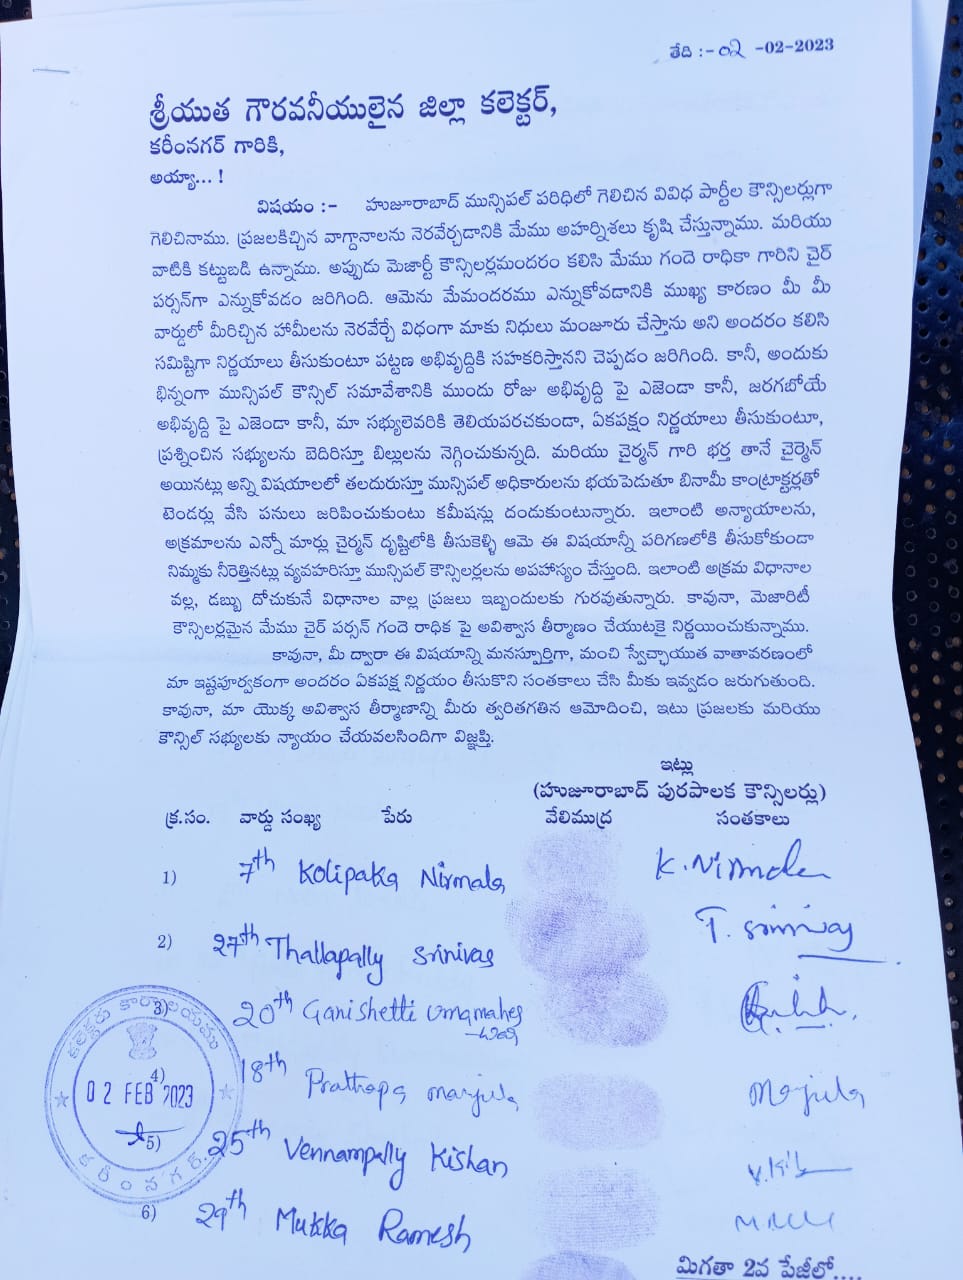 తేది :- 02 -02-2023
శ్రీయుత గౌరవనీయులైన జిల్లా కలెక్టర్,
కరీంనగర్ గారికి,
అయ్యా... !
విషయం :- హుజూరాబాద్ మున్సిపల్ పరిధిలో గెలిచిన వివిధ పార్టీల కౌన్సిలర్లుగా
గెలిచినాము. ప్రజలకిచ్చిన వాగ్దానాలను నెరవేర్చడానికి మేము అహర్నిశలు కృషి చేస్తున్నాము. మరియు
వాటికి కట్టుబడి ఉన్నాము. అప్పుడు మెజార్టీ కౌన్సిలర్లమందరం కలిసి మేము గందె రాధికా గారిని చైర్
పర్సన్‌గా ఎన్నుకోవడం జరిగింది. ఆమెను మేమందరము ఎన్నుకోవడానికి ముఖ్య కారణం మీ మీ
వార్డులో మీరిచ్చిన హామీలను నెరవేర్చే విధంగా మాకు నిధులు మంజూరు చేస్తాను అని అందరం కలిసి
సమిష్టిగా నిర్ణయాలు తీసుకుంటూ పట్టణ అభివృద్దికి సహకరిస్తానని చెప్పడం జరిగింది. కానీ, అందుకు
భిన్నంగా మున్సిపల్ కౌన్సిల్ సమావేశానికి ముందు రోజు అభివృద్ది పై ఎజెండా కానీ, జరగబోయే
అభివృద్ది పై ఎజెండా కానీ, మా సభ్యులెవరికి తెలియపరచకుండా, ఏకపక్షం నిర్ణయాలు తీసుకుంటూ,
ప్రశ్నించిన సభ్యులను బెదిరిస్తూ బిల్లులను నెగ్గించుకున్నది. మరియు చైర్మన్ గారి భర్త తానే చైర్మెన్
అయినట్లు అన్ని విషయాలలో తలదురుస్తూ మున్సిపల్ అధికారులను భయపెడుతూ బినామీ కాంట్రాక్టర్లతో
టెండర్లు వేసి పనులు జరిపించుకుంటు కమీషన్లు దండుకుంటున్నారు. ఇలాంటి అన్యాయాలను,
అక్రమాలను ఎన్నో మార్లు చైర్మన్ దృష్టిలోకి తీసుకెళ్ళి ఆమె ఈ విషయాన్నీ పరిగణలోకి తీసుకోకుండా
నిమ్మకు నీరెత్తినట్లు వ్యవహరిస్తూ మున్సిపల్ కౌన్సిలర్లలను అపహాస్యం చేస్తుంది. ఇలాంటి అక్రమ విధానాల
వల్ల, డబ్బు దోచుకునే విధానాల వాల్ల ప్రజలు ఇబ్బందులకు గురవుతున్నారు. కావునా, మెజారిటీ
కౌన్సిలర్లమైన మేము చైర్ పర్సన్ గందె రాధిక పై అవిశ్వాస తీర్మాణం చేయుటకై నిర్ణయించుకున్నాము.
కావునా, మీ ద్వారా ఈ విషయాన్ని మనస్పూర్తిగా, మంచి స్వేచ్ఛాయుత వాతావరణంలో
మా ఇష్టపూర్వకంగా అందరం ఏకపక్ష నిర్ణయం తీసుకొని సంతకాలు చేసి మీకు ఇవ్వడం జరుగుతుంది.
కావునా, మా యొక్క అవిశ్వాస తీర్మాణాన్ని మీరు త్వరితగతిన ఆమోదించి, ఇటు ప్రజలకు మరియు
కౌన్సిల్ సభ్యులకు న్యాయం చేయవలసిందిగా విజ్ఞప్తి.
ఇట్లు
(హుజూరాబాద్ పురపాలక కౌన్సిలర్లు)
క్ర.సం. వార్డు సంఖ్య పేరు వేలిముద్ర సంతకాలు
1) 7th Kolipaka Nirmala K. Nirmala
2) 27th Thallapally Srinivas T. Srinivas
3) 20th Ganishetti Umamahes
4) 18th Prathapa Manjula Manjula
5) 25th Vennampally Kishan
6) 29th Mukka Ramesh
కలెక్టరు కార్యాలయము
02 FEB 2023
కరీంనగర్.
మిగతా 2వ పేజీలో....